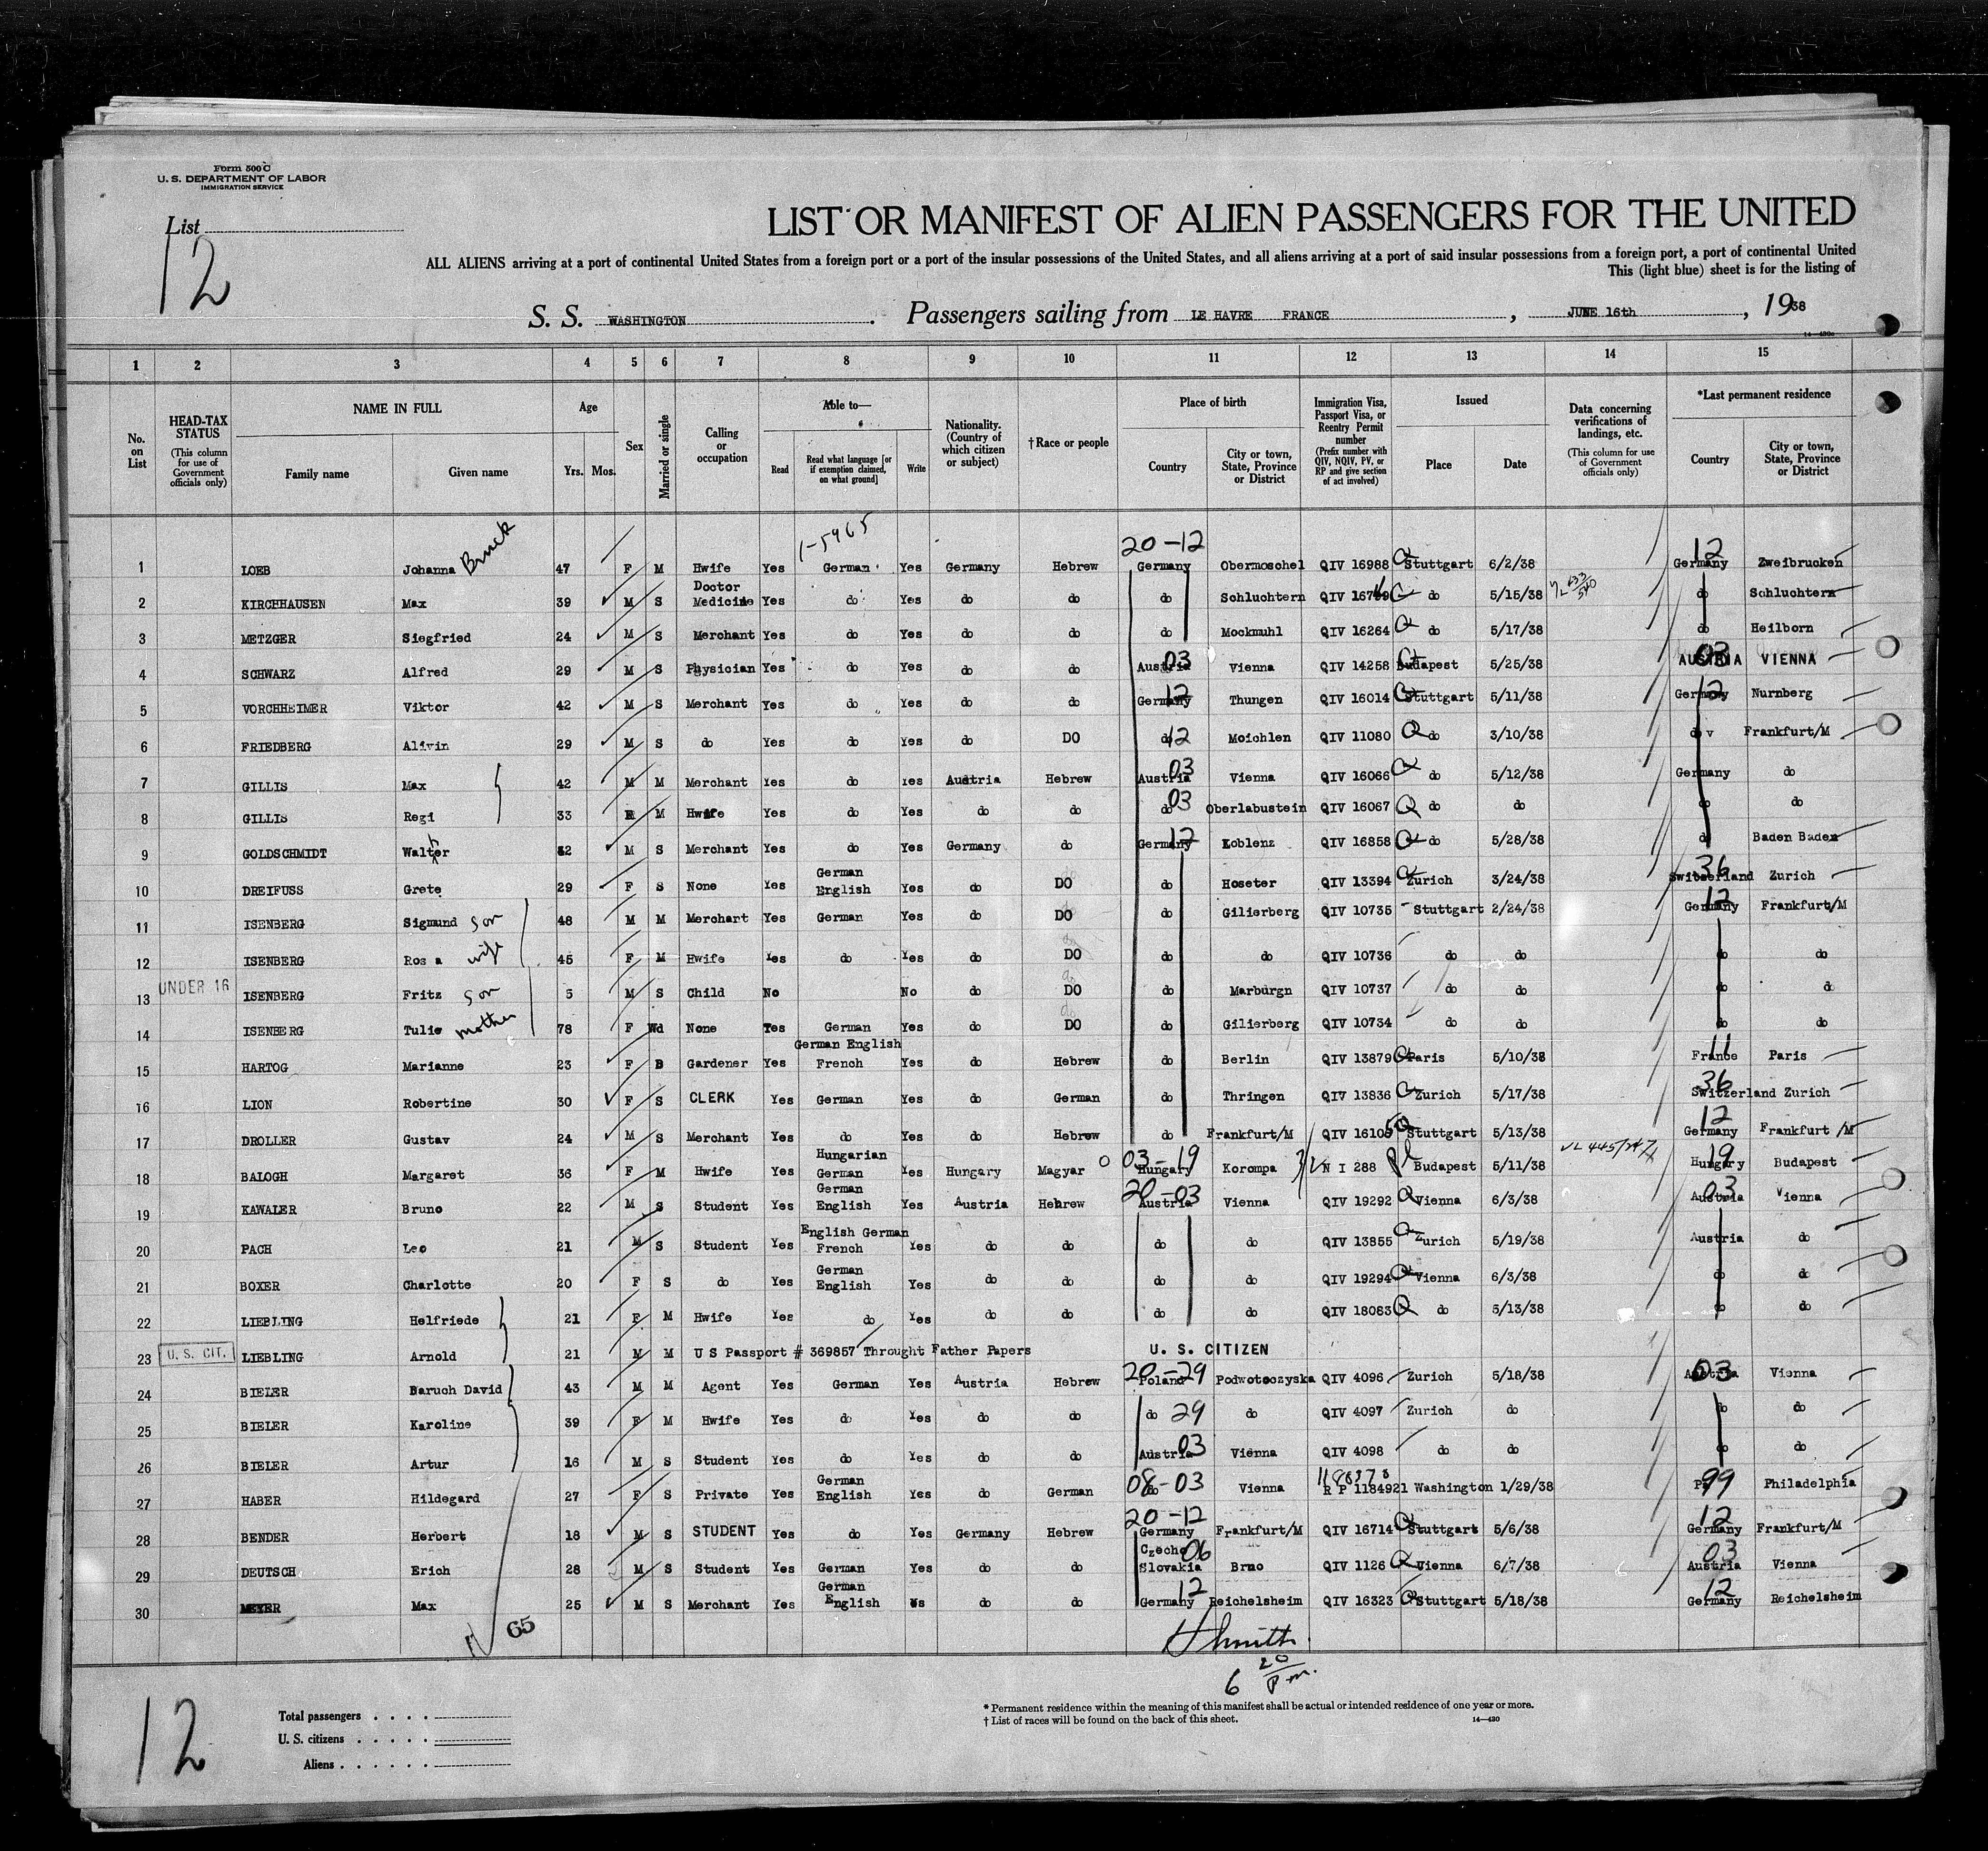 Form 500 C
U. S. DEPARTMENT OF LABOR
IMMIGRATION SERVICE
List
12
LIST OR MANIFEST OF ALIEN PASSENGERS FOR THE UNITED
ALL ALIENS arriving at a port of continental United States from a foreign port or a port of the insular possessions of the United States, and all aliens arriving at a port of said insular possessions from a foreign port, a port of continental United
This (light blue) sheet is for the listing of
S. S. WASHINGTON . Passengers sailing from LE HAVRE FRANCE , JUNE 16th , 1938
14—430c
1 2 3 4 5 6 7 8 9 10 11 12 13 14 15
No. on List
HEAD-TAX STATUS (This column for use of Government officials only)
NAME IN FULL
Family name Given name
Age
Yrs. Mos.
Sex
Married or single
Calling or occupation
Able to—
Read Read what language [or if exemption claimed, on what ground] Write
Nationality. (Country of which citizen or subject)
†Race or people
Place of birth
Country City or town, State, Province or District
Immigration Visa, Passport Visa, or Reentry Permit number (Prefix number with QIV, NQIV, PV, or RP and give section of act involved)
Issued
Place Date
Data concerning verifications of landings, etc. (This column for use of Government officials only)
*Last permanent residence
Country City or town, State, Province or District
1-5965 20-12 12
1 LOEB Johanna Bruck 47 F M Hwife Yes German Yes Germany Hebrew Germany Obermoschel QIV 16988 Stuttgart 6/2/38 Germany Zweibrucken
2 KIRCHHAUSEN Max 39 M S Doctor Medicine Yes do Yes do do do Schluchtern QIV do 5/15/38 do Schluchtern
3 METZGER Siegfried 24 M S Merchant Yes do Yes do do do Mockmuhl QIV 16264 do 5/17/38 do Heilborn
4 SCHWARZ Alfred 29 M S Physician Yes do Yes do do Austria 03 Vienna QIV 14258 Budapest 5/25/38 AUSTRIA 03 VIENNA
5 VORCHHEIMER Viktor 42 M S Merchant Yes do Yes do do Germany 12 Thungen QIV 16014 Stuttgart 5/11/38 Germany 12 Nurnberg
6 FRIEDBERG Alivin 29 M S do Yes do Yes do DO do 12 Moichlen QIV 11080 do 3/10/38 do v Frankfurt/M
7 GILLIS Max 42 M M Merchant Yes do Yes Austria Hebrew Austria 03 Vienna QIV 16066 do 5/12/38 Germany do
8 GILLIS Regi 33 F M Hwife Yes do Yes do do do 03 Oberlabustein QIV 16067 do do do do
9 GOLDSCHMIDT Walter 32 M S Merchant Yes do Yes Germany do Germany 12 Koblenz QIV 16858 do 5/28/38 do Baden Baden
10 DREIFUSS Grete 29 F S None Yes German English Yes do DO do Hoseter QIV 13394 Zurich 3/24/38 Switzerland 36 Zurich
11 ISENBERG Sigmund son 48 M M Merchart Yes German Yes do DO do Gilierberg QIV 10735 Stuttgart 2/24/38 Germany 12 Frankfurt/M
12 ISENBERG Ros a wife 45 F M Hwife Yes do Yes do DO do do QIV 10736 do do do do
13 UNDER 16 ISENBERG Fritz son 5 M S Child No No do DO do Marburgn QIV 10737 do do do do
14 ISENBERG Tulie mother 78 F Wd None Yes German Yes do DO do Gilierberg QIV 10734 do do do do
15 HARTOG Marianne 23 F S Gardener Yes German English French Yes do Hebrew do Berlin QIV 13879 Paris 5/10/38 France 11 Paris
16 LION Robertine 30 F S CLERK Yes German Yes do German do Thringen QIV 13836 Zurich 5/17/38 Switzerland 36 Zurich
17 DROLLER Gustav 24 M S Merchant Yes do Yes do Hebrew do Frankfurt/M QIV 16105 Stuttgart 5/13/38 Germany 12 Frankfurt /M
18 BALOGH Margaret 36 F M Hwife Yes Hungarian German Yes Hungary Magyar Hungary 03-19 Korompa N I 288 Budapest 5/11/38 Hungary 19 Budapest
19 KAWALER Bruno 22 M S Student Yes German English Yes Austria Hebrew Austria 20-03 Vienna QIV 19292 Vienna 6/3/38 Austria 03 Vienna
20 PACH Leo 21 M S Student Yes English German French Yes do do do do QIV 13855 Zurich 5/19/38 Austria do
21 BOXER Charlotte 20 F S do Yes German English Yes do do do do QIV 19294 Vienna 6/3/38 do do
22 LIEBLING Helfriede 21 F M Hwife Yes do Yes do do do do QIV 18083 do 5/13/38 do do
23 U. S. CIT. LIEBLING Arnold 21 M M U S Passport # 369857 Throught Father Papers U. S. CITIZEN
24 BIELER Baruch David 43 M M Agent Yes German Yes Austria Hebrew Poland 20-29 Podwotoczyska QIV 4096 Zurich 5/18/38 Austria 03 Vienna
25 BIELER Karoline 39 F M Hwife Yes do Yes do do do 29 do QIV 4097 Zurich do do do
26 BIELER Artur 16 M S Student Yes do Yes do do Austria 03 Vienna QIV 4098 do do do do
27 HABER Hildegard 27 F S Private Yes German English Yes do German do 08-03 Vienna R P 1184921 Washington 1/29/38 Pa 99 Philadelphia
28 BENDER Herbert 18 M S STUDENT Yes do Yes Germany Hebrew Germany 20-12 Frankfurt/M QIV 16714 Stuttgart 5/6/38 Germany 12 Frankfurt/M
29 DEUTSCH Erich 28 M S Student Yes German Yes do do Czecho Slovakia 06 Brno QIV 1126 Vienna 6/7/38 Austria 03 Vienna
30 MEYER Max 25 M S Merchant Yes German English do do Germany 12 Reichelsheim QIV 16323 Stuttgart 5/18/38 Germany 12 Reichelsheim
65
6 20 p.m.
12
Total passengers . . . .
U. S. citizens . . . . .
Aliens . . . . . .
* Permanent residence within the meaning of this manifest shall be actual or intended residence of one year or more.
† List of races will be found on the back of this sheet.
14—430